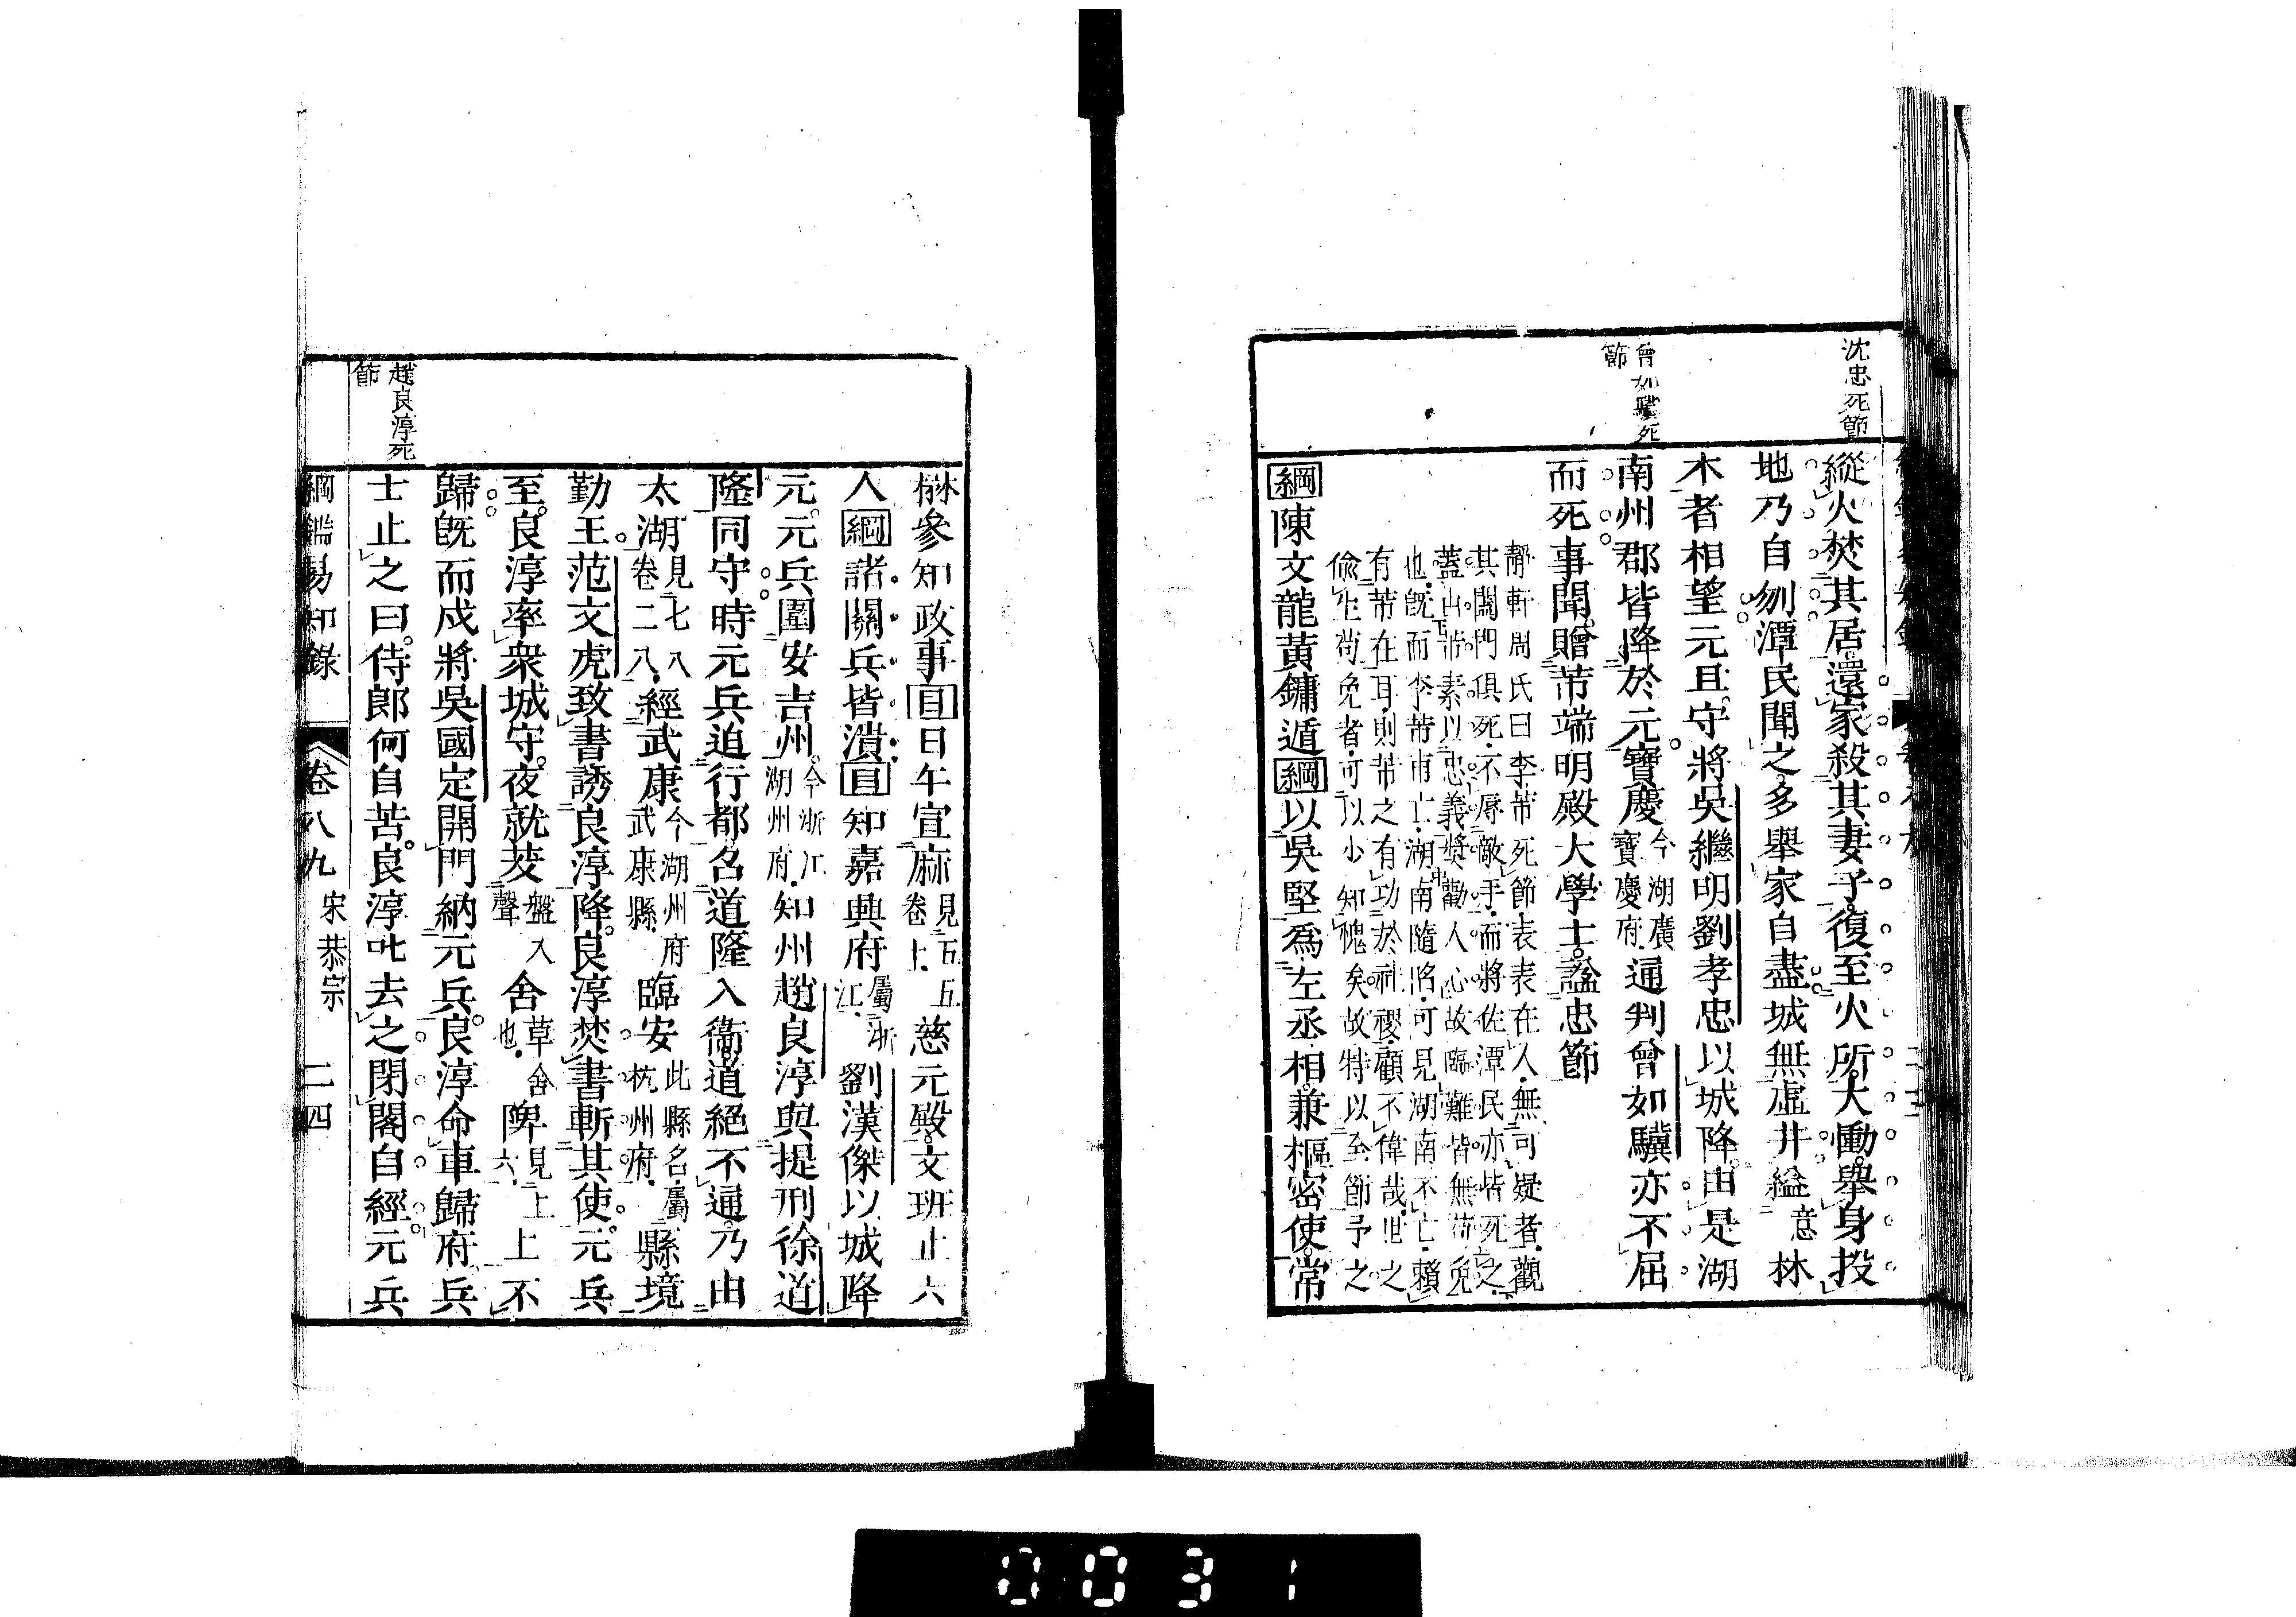 沈忠死節
曾如驥死
節
縱火焚其居還家殺其妻子復至火所大慟舉身投
地乃自刎潭民聞之多舉家自盡城無虛井縊意林
木者相望元旦守將吳繼明劉孝忠以城降由是湖
南州郡皆降於元寶慶今湖廣寶慶府通判曾如驥亦不屈
而死事聞贈芾端明殿大學士諡忠節
靜軒周氏曰李芾死節表表在人無可疑者觀
其闔門俱死不辱敵手而將佐潭民亦皆死之
蓋由芾素以忠義獎勸人心故臨難皆無苟免
也旣而李芾甫亡湖南隨陷可見湖南不亡賴
有芾在耳則芾之有功於社稷顧不偉哉世之
偸生苟免者可以少知愧矣故特以至節予之
綱陳文龍黃鏞遁綱以吳堅爲左丞相兼樞密使常
楙參知政事目日午宣麻見五五卷上慈元殿文班止六
人綱諸關兵皆潰目知嘉興府屬浙江劉漢傑以城降
元元兵圍安吉州今浙江湖州府知州趙良淳與提刑徐道
隆同守時元兵迫行都召道隆入衞道絕不通乃由
太湖見七八卷二八經武康今湖州府武康縣臨安此縣名屬杭州府縣境
勤王范文虎致書誘良淳降良淳焚書斬其使元兵
至良淳率衆城守夜就茇盤入聲舍草舍也陴見上六上不
歸旣而戍將吳國定開門納元兵良淳命車歸府兵
士止之曰侍郞何自苦良淳叱去之閉閣自經元兵
趙良淳死
節
綱鑑易知錄 卷八九 宋恭宗 二四
0031